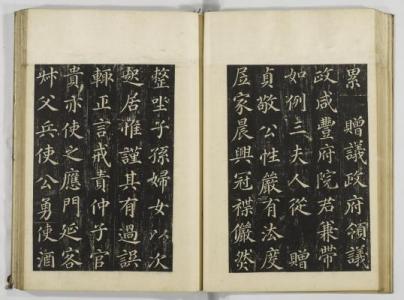 累 贈議政府領議
政咸豐府院君兼帶
如例三夫人從 贈
貞敬公性嚴有法度
居家晨興冠襟儼然
整坐子孫婦女以次
起居惟謹其有過誤
輒正言戒責仲子官
貴亦使之應門延客
叔父兵使公勇使酒